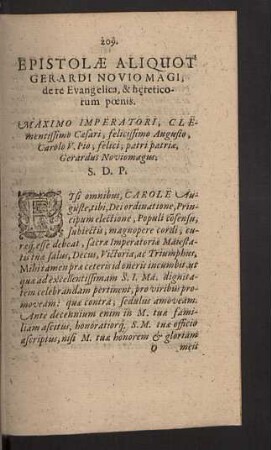 209.
EPISTOLÆ ALIQUOT
GERARDI NOVIOMAGI,
de re Evangelica, & hęretico-
rum pœnis.
MAXIMO IMPERATORI, CLE-
mentissimo Cæsari, felicissimo Augusto,
Carolo V. Pio, felici, patri patriæ,
Gerardus Noviomagus,
S. D. P.
ETsi omnibus, CAROLE Au-
guste, tibi, Dei ordinatione, Prin-
cipum electione, Populi cõsensu,
subjectis, magnopere cordi, cu-
ręq́; esse debeat, sacræ Imperatoriæ Maiesta-
tis tuæ salus, Decus, Victoria, ac Triumphus,
Mihi tamen præ ceteris id oneris incumbit, ut
quæ ad excellentissimam S. I. Ma. dignita-
tem celebrandam pertinent, pro viribus pro-
moveam: quæ contrà, sedulus amoveam.
Ante decennium enim in M. tuæ fami-
liam ascitus, honoratiorq́; S. M. tuæ officio
ascriptus, nisi M. tuæ honorem & gloriam
O meis